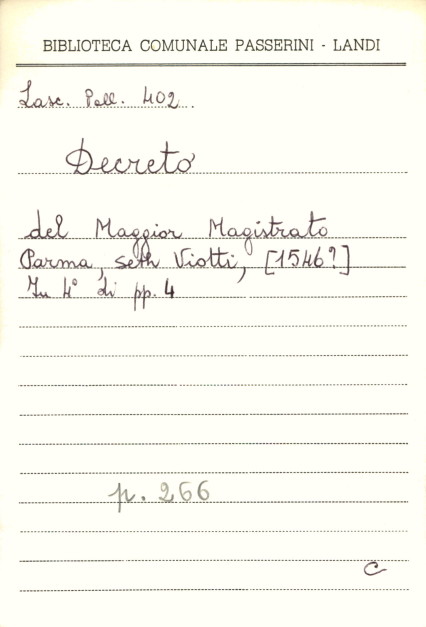 BIBLIOTECA COMUNALE PASSERINI - LANDI
Lasc. Pall. 402.
Decreto
del Maggior Magistrato
Parma, Seth Viotti, [1546?]
In 4° di pp. 4
p. 266
C